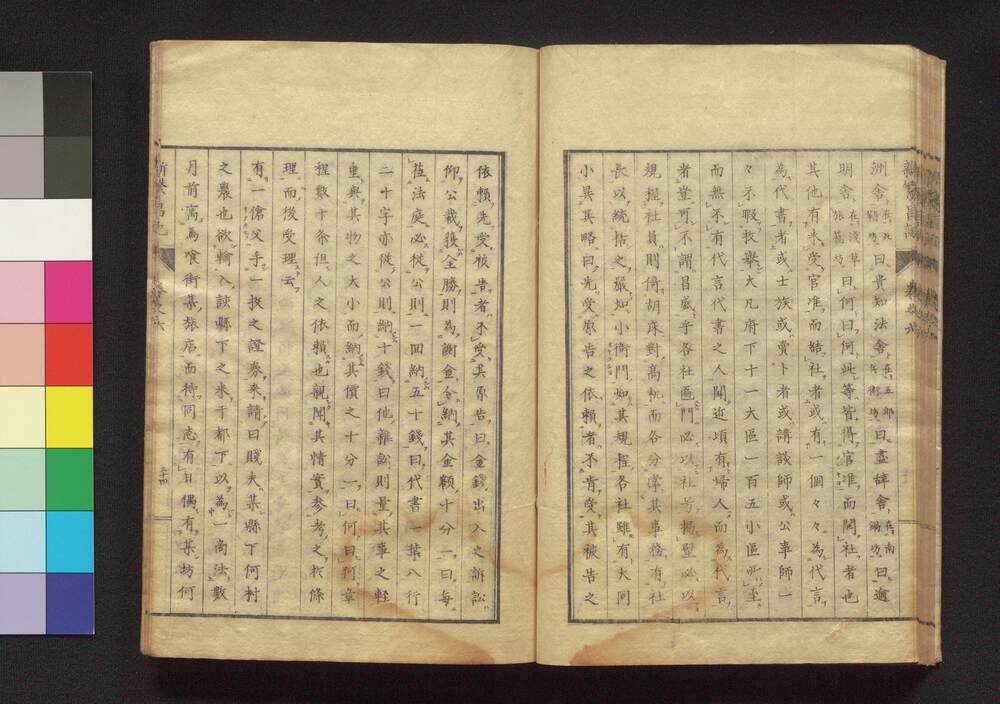 洲舍(在北鞘坊)曰貴知法舍(在五郎兵衛坊)曰盡辭舍(在南鍋坊)曰適
明舍(在淺草旅籠坊)曰何曰何斑等皆得官准而開社者也
其他有未受官准而結社者或有一個々々為代言
為代書者或士族或賣卜者或講談師或公事師一
々不暇枚舉大凡府下十一大區一百五小區所至
而無不有代言代書之人聞近頃有婦人而為代言
者豈可不謂昌盛乎各社區門必以社号揭壁必以
規程社員則倚胡床對高机而各分掌其事務有社
長以統括之嚴如小衙門如其規程各社雖有大同
小異其略曰先受原告之依賴者不肯受其被告之
依賴先受被告者不受其原告曰金錢出入之訴訟
仰公裁獲全勝則為謝金令納其金額十分一曰每
莅法庭必從公則一回納五十錢曰代書一葉八行
二十字亦從公則納十錢曰他雜訟則量其事之輕
重與其物之大小而納其價之十分一曰何曰何章
程數十条但人之依賴也親聞其情實參考之於條
理而後受理云
有一傖父手一枚之證券來請曰賤夫某縣下何村
之農也欲輸入該縣下之米于都下以為一商法數
月前寓馬喰街某旅店而待同志有日偶有某坊何